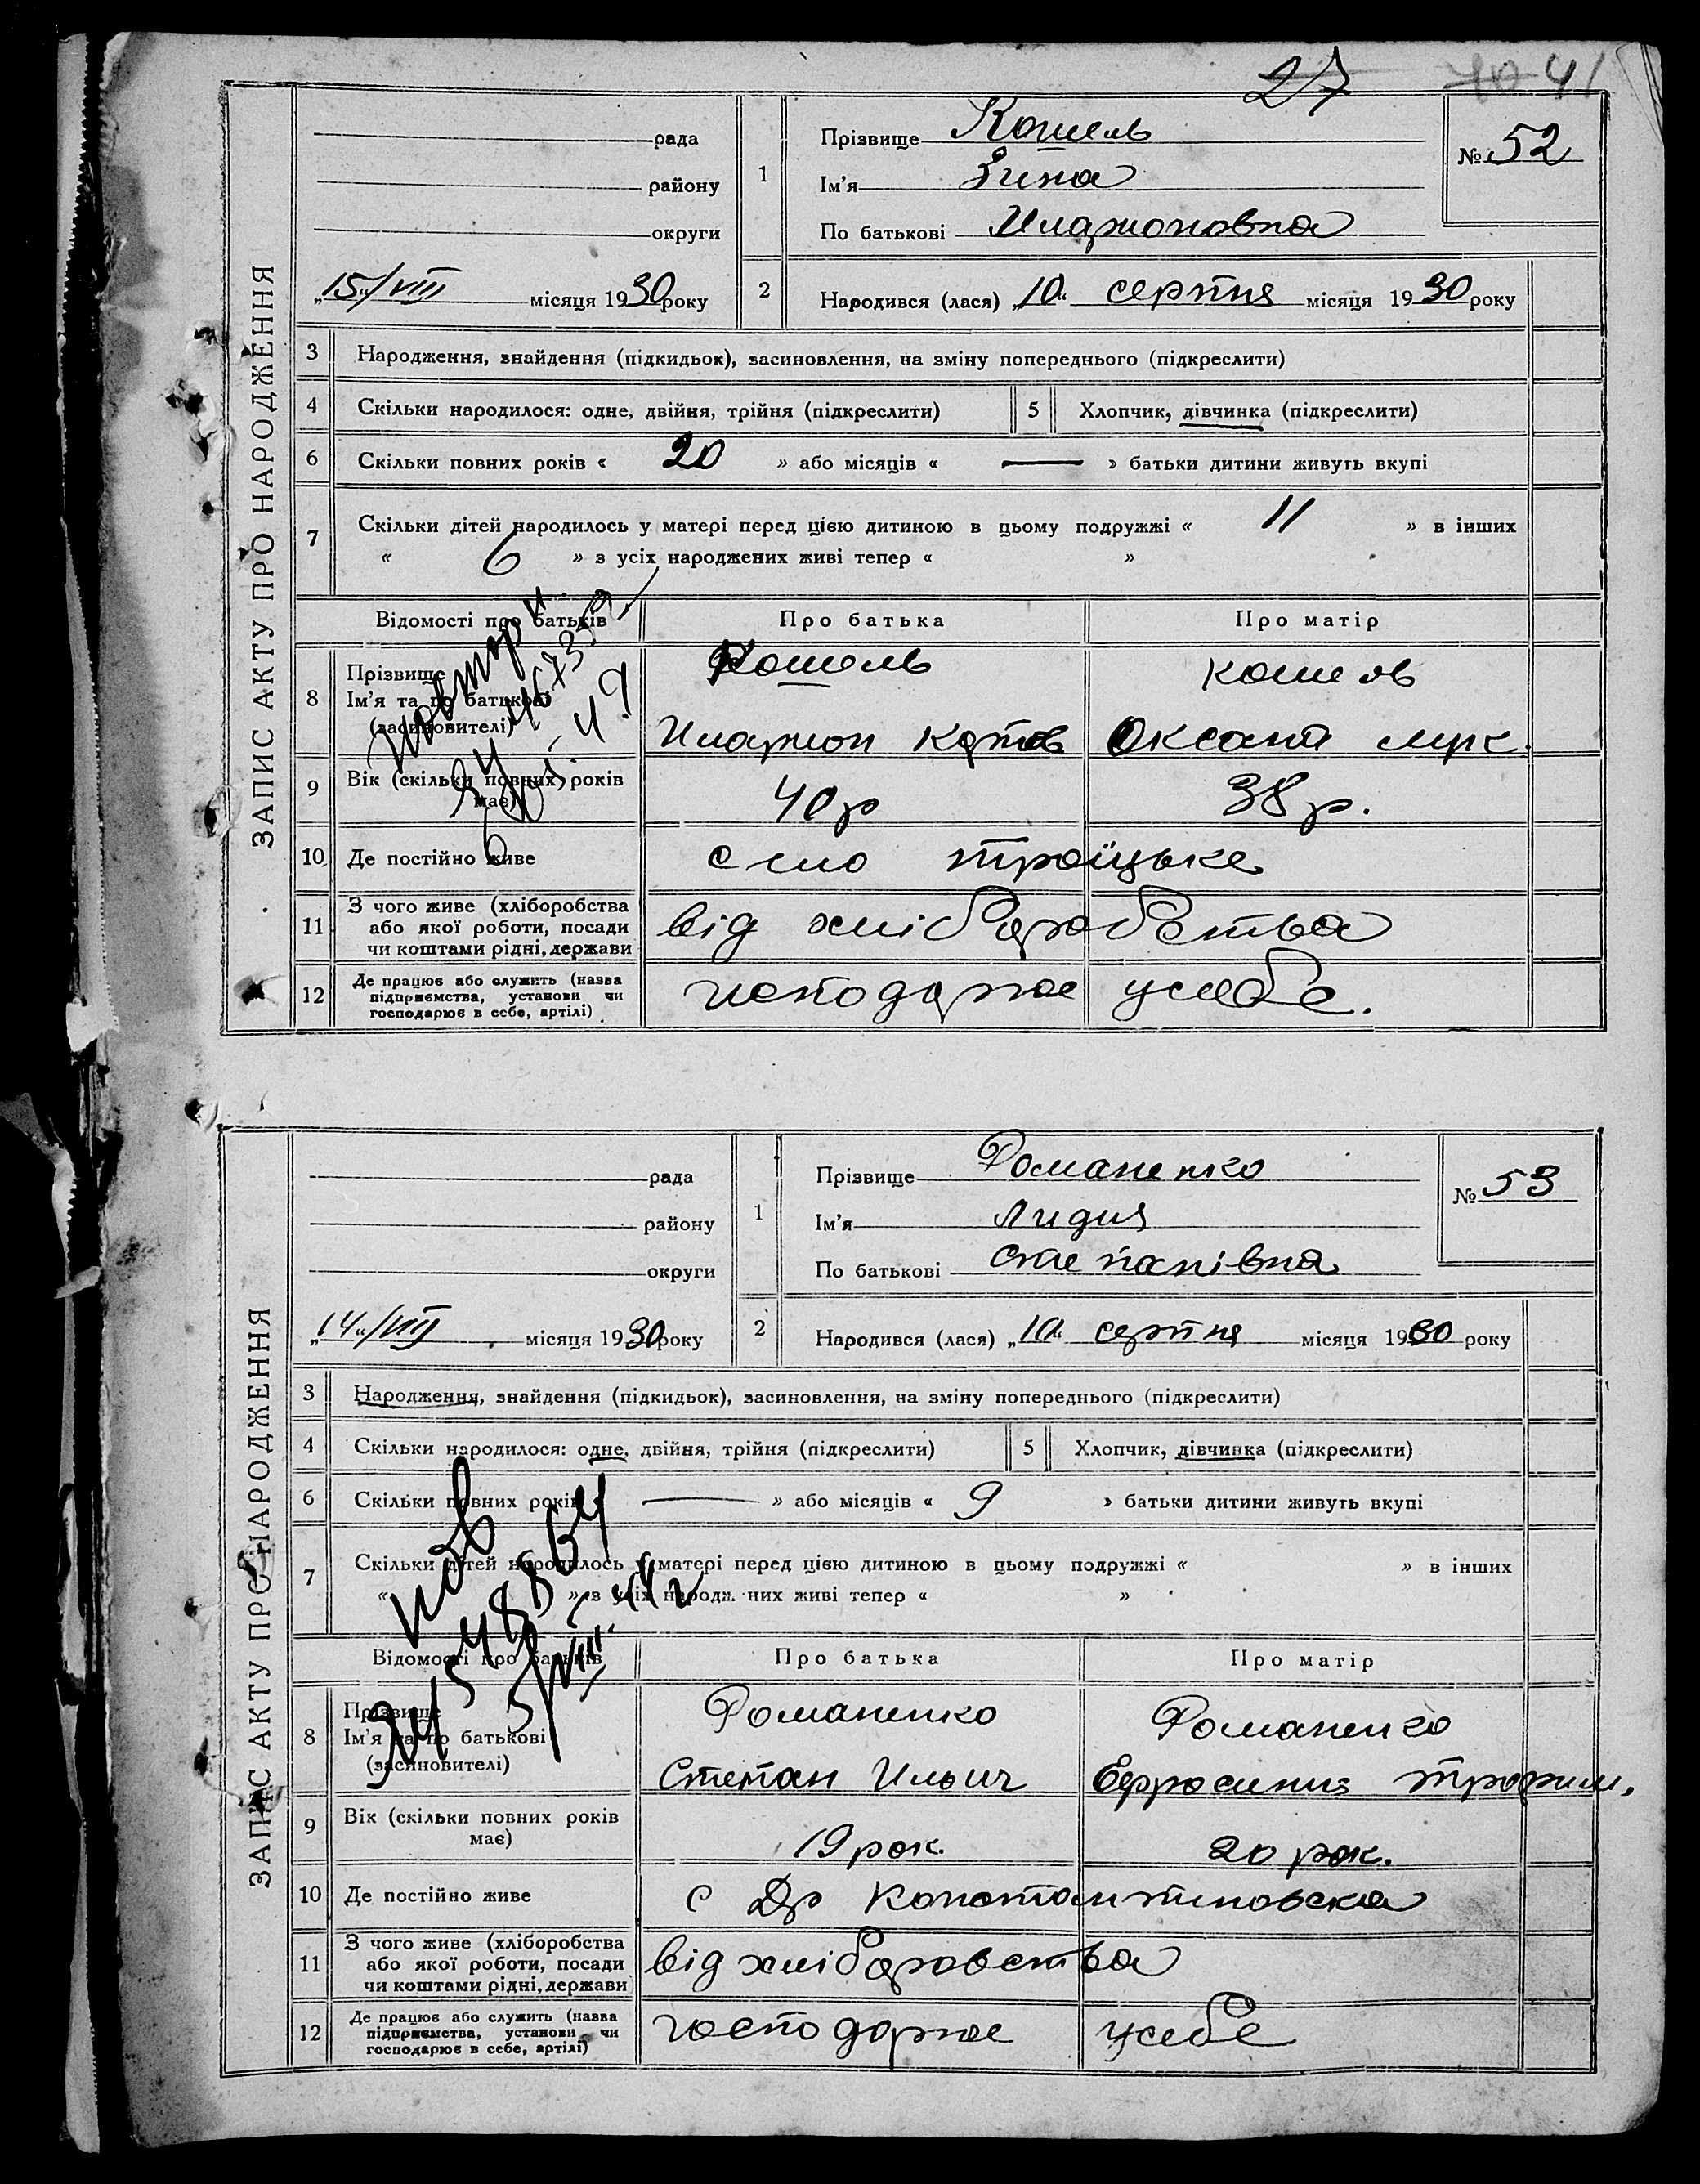 27 40 41
ЗАПИС АКТУ ПРО НАРОДЖЕННЯ
рада
району
округи
„15“/VIII місяця 1930 року
1
Прізвище Кошель
Ім'я Зина
По батькові Иларионовна
№ 52
2
Народився (лася) „10“ серпня місяця 1930 року
3 Народження, знайдення (підкидьок), засиновлення, на зміну попереднього (підкреслити)
4 Скільки народилося: одне, двійня, трійня (підкреслити) 5 Хлопчик, дівчинка (підкреслити)
6 Скільки повних років « 20 » або місяців « — » батьки дитини живуть вкупі
7 Скільки дітей народилось у матері перед цією дитиною в цьому подружжі « 11 » в інших
« 6 » з усіх народжених живі тепер « »
Відомості про батьків Про батька Про матір
8 Прізвище
Ім'я та по батькові
(засиновителі)
Кошель Кошель
Иларион Оксана
9 Вік (скільки повних років
має)
40 р 38 р.
10 Де постійно живе село троїцьке
11 З чого живе (хліборобства
або якої роботи, посади
чи коштами рідні, держави
від хліборобства
12 Де працює або служить (назва
підприємства, установи чи
господарює в себе, артілі)
господарює усебе.
повтор
ЗАПИС АКТУ ПРО НАРОДЖЕННЯ
рада
району
округи
„14“/VIII місяця 1930 року
1
Прізвище Романенко
Ім'я Лидия
По батькові Степанівна
№ 53
2
Народився (лася) „10“ серпня місяця 1930 року
3 Народження, знайдення (підкидьок), засиновлення, на зміну попереднього (підкреслити)
4 Скільки народилося: одне, двійня, трійня (підкреслити) 5 Хлопчик, дівчинка (підкреслити)
6 Скільки повних років — » або місяців « 9 » батьки дитини живуть вкупі
7 Скільки дітей народилось у матері перед цією дитиною в цьому подружжі « » в інших
« » з усіх народжених живі тепер « »
Відомості про батьків Про батька Про матір
8 Прізвище
Ім'я та по батькові
(засиновителі)
Романенко Романенко
Степан Ильич Ефросиния трофим.
9 Вік (скільки повних років
має)
19 рок. 20 рок.
10 Де постійно живе с Др Константиновска
11 З чого живе (хліборобства
або якої роботи, посади
чи коштами рідні, держави
від хліборовства
12 Де працює або служить (назва
підприємства, установи чи
господарює в себе, артілі)
господарює усебе